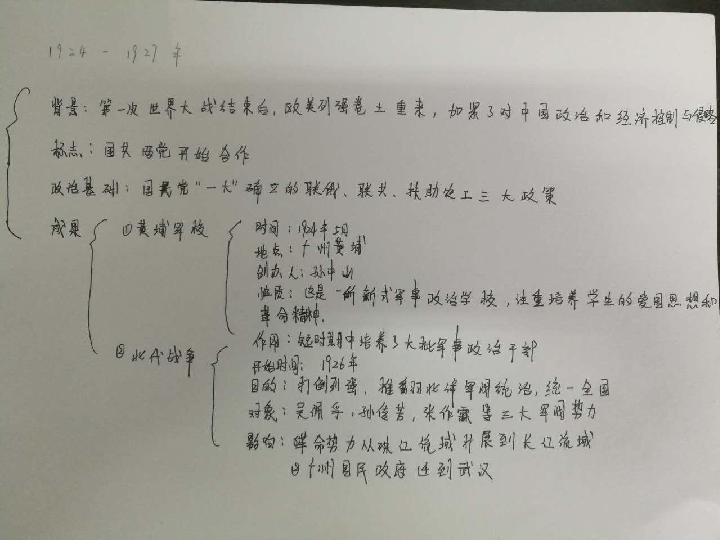 1924 - 1927 年
背景：第一次世界大战结束后，欧美列强卷土重来，加紧了对中国政治和经济控制与侵略
标志：国共两党开始合作
政治基础：国民党"一大"确立的联俄、联共、扶助农工三大政策
成果 ①黄埔军校
时间：1924年5月
地点：广州黄埔
创办人：孙中山
性质：这是一所新式军事政治学校，注重培养学生的爱国思想和
革命精神.
作用：短时期中培养了大批军事政治干部
②北伐战争
开始时间：1926年
目的：打倒列强，推翻北洋军阀统治，统一全国
对象：吴佩孚，孙传芳，张作霖等三大军阀势力
影响：革命势力从珠江流域开展到长江流域
广州国民政府迁到武汉